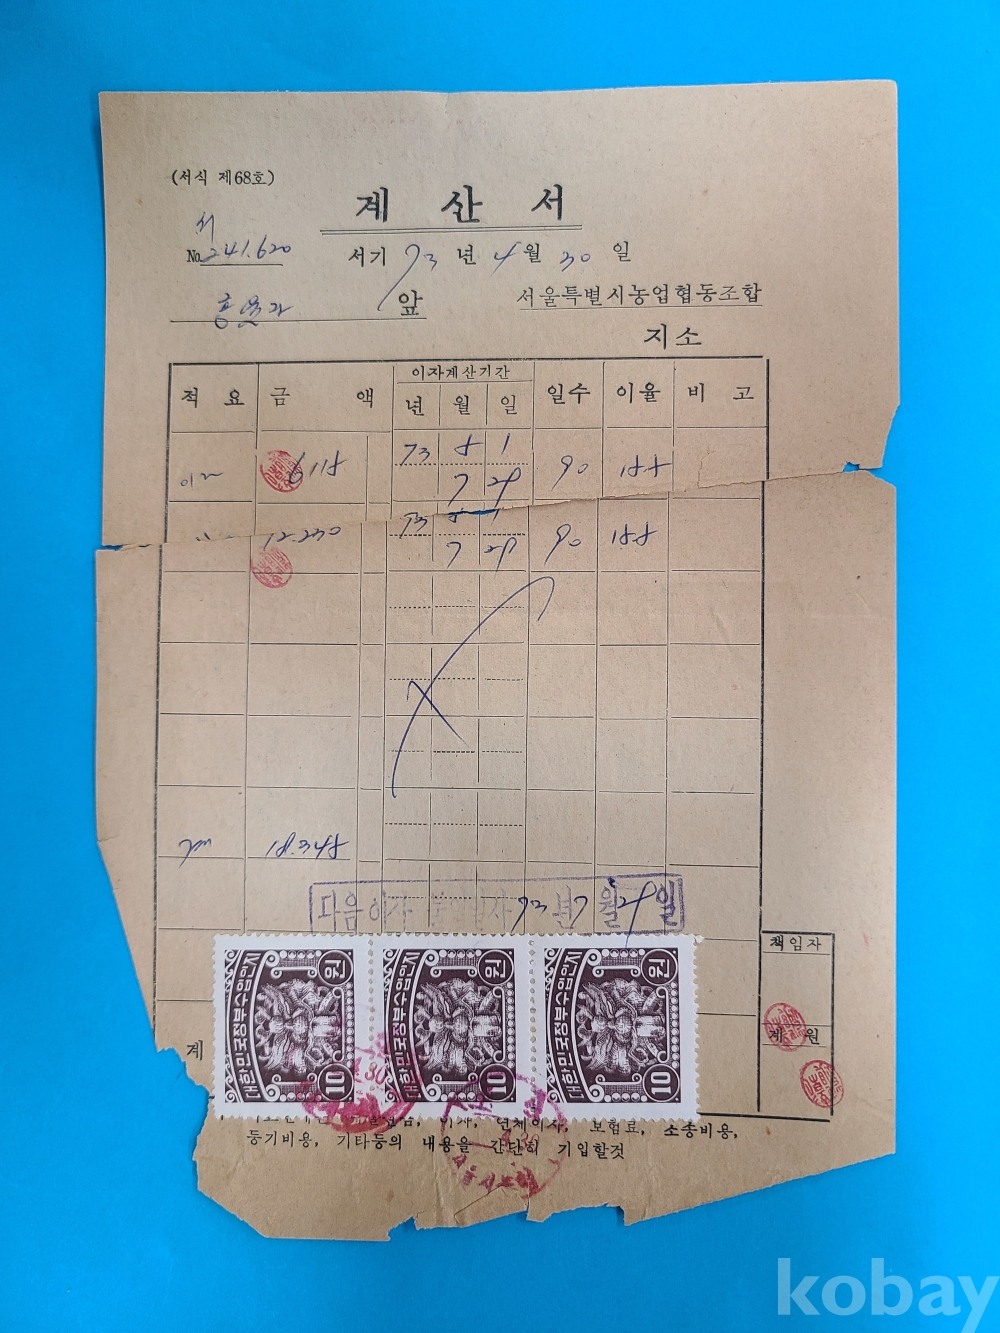 (서식 제68호)
계 산 서
서
No. 241.620
서기 73 년 4 월 30 일
앞
서울특별시농업협동조합
지소
적 요 금 액 이자계산기간 일수 이율 비 고
년 월 일
6,118 73 5 1 90
7 29
12.230 73 5 1 90
7 29
18.348
다음이자 73 년 7 월 29 일
책임자
계 원
계
대한민국정부수입인지 10원
대한민국정부수입인지 10원
대한민국정부수입인지 10원
이자, 연체이자, 보험료, 소송비용,
등기비용, 기타등의 내용을 간단히 기입할것
kobay